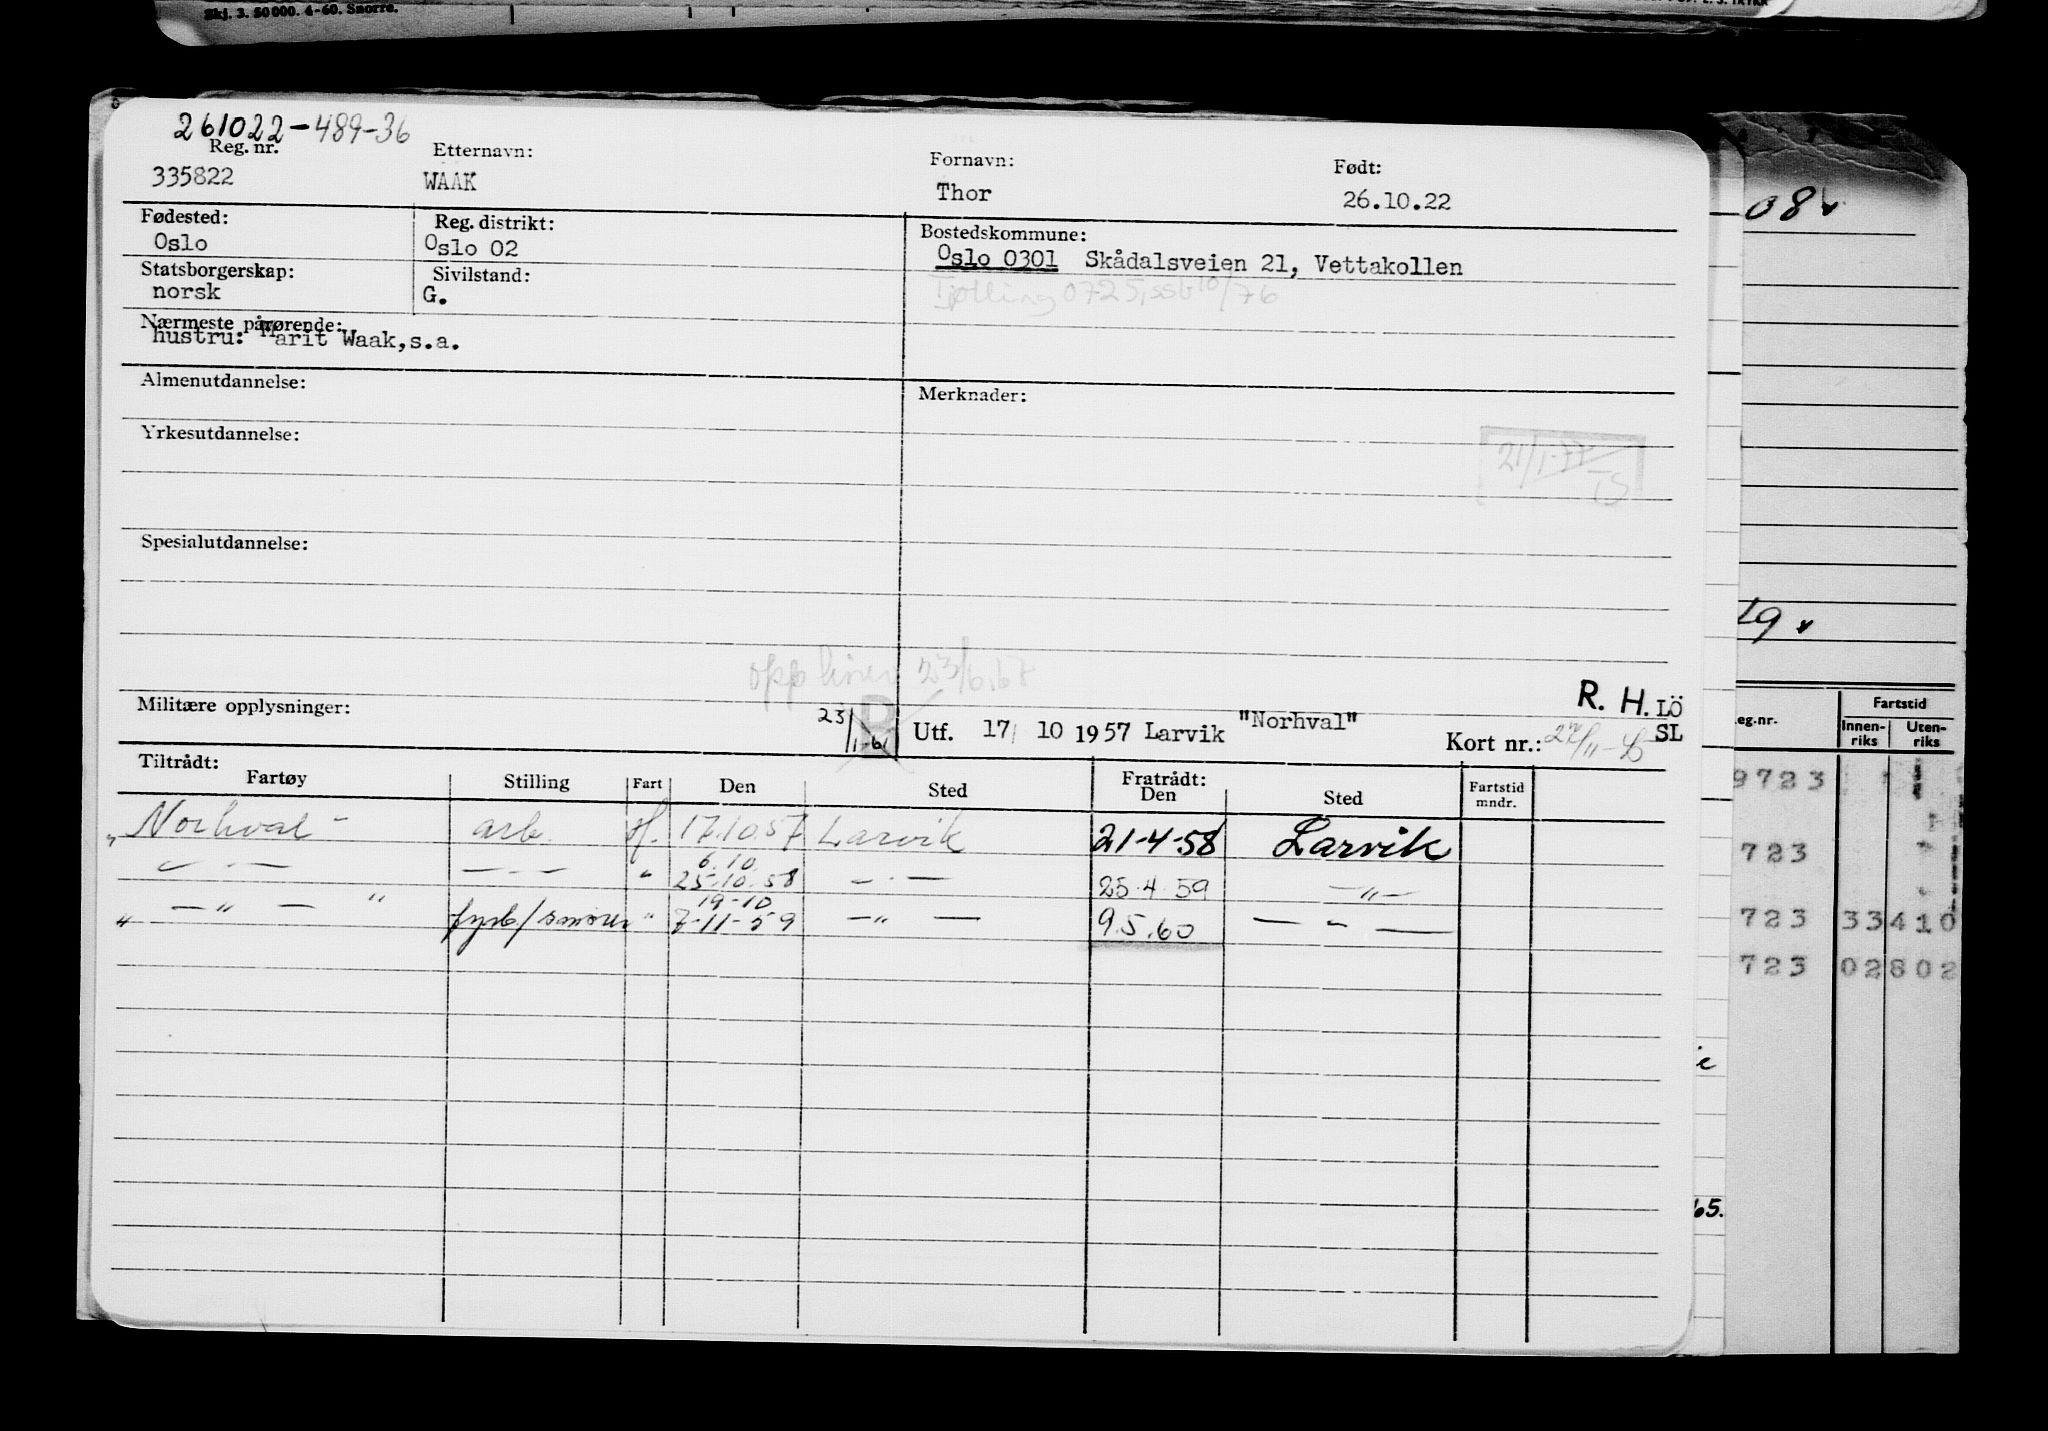 Skj. 3. 50 000. 4-60. Snorre.
261022-489-36
Reg. nr. Etternavn: Fornavn: Født:
335822 WAAK Thor 26.10.22
Fødested: Reg. distrikt: Bostedskommune:
Oslo Oslo 02 Oslo 0301 Skådalsveien 21, Vettakollen
Statsborgerskap: Sivilstand: Tjølling 0725, ssb 10/76
norsk G.
Nærmeste pårørende:
hustru: Marit Waak,s.a.
Almenutdannelse: Merknader:
Yrkesutdannelse:
21/1-77
TS
Spesialutdannelse:
23/6.67
Militære opplysninger: 23/1-61 R. H. LÖ
Utf. 17/ 10 1957 Larvik "Norhval" Kort nr.: SL
Tiltrådt: Fratrådt:
Fartøy Stilling Fart Den Sted Den Sted Fartstid mndr.
"Norhval" arb. Hf. 17.10.57 Larvik 21-4-58 Larvik
— — — - - — " 6.10 25.10.58 — . — 25.4.59 — " —
" — " — " fyrb/smører " 19-10 7-11-59 — " — 9.5.60 — " —
08
19
Reg.nr. Fartstid
Innen-riks Uten-riks
9723
723
723 33410
723 02802
65.